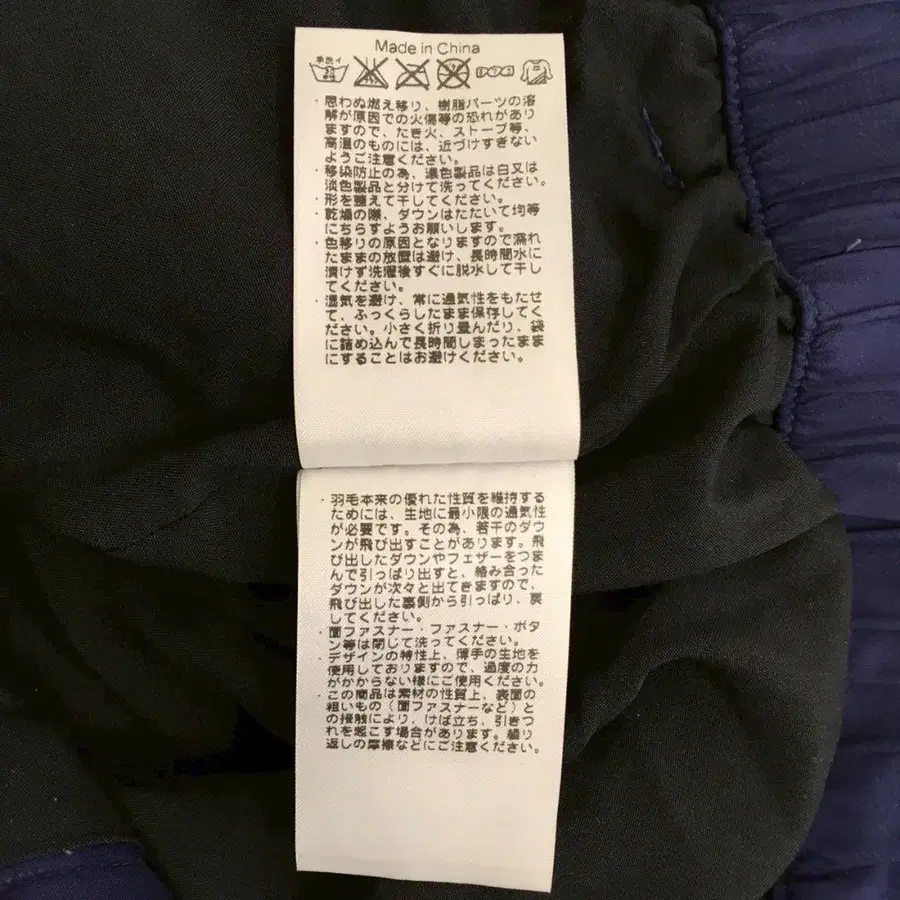 Made in China
手洗イ
・思わぬ燃え移り、樹脂パーツの溶
解が原因での火傷等の恐れがあり
ますので、たき火、ストーブ等、
高温のものには、近づけすぎない
ようご注意ください。
・移染防止の為、濃色製品は白又は
淡色製品と分けて洗ってください。
・形を整えて干してください。
・乾燥の際、ダウンはたたいて均等
にちらすようお願いします。
・色移りの原因となりますので濡れ
たままの放置は避け、長時間水に
漬けず洗濯後すぐに脱水して干し
てください。
・湿気を避け、常に通気性をもたせ
て、ふっくらしたまま保存してく
ださい。小さく折り畳んだり、袋
に詰め込んで長時間しまったまま
にすることはお避けください。
・羽毛本来の優れた性質を維持する
ためには、生地に最小限の通気性
が必要です。その為、若干のダウ
ンが飛び出すことがあります。飛
び出したダウンやフェザーをつま
んで引っぱり出すと、絡み合った
ダウンが次々と出てきますので、
飛び出した裏側から引っぱり、戻
してください。
・面ファスナー・ファスナー・ボタ
ン等は閉じて洗ってください。
・デザインの特性上、薄手の生地を
使用しておりますので、過度の力
がかからない様にご使用ください。
・この商品は素材の性質上、表面の
粗いもの（面ファスナーなど）と
の接触により、けば立ち、引きつ
れを起こす場合があります。繰り
返しの摩擦などにご注意ください。